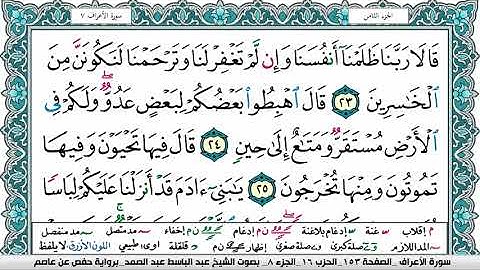 الجزء الثامن
سورة الأعراف ٧
قَالَا رَبَّنَا ظَلَمْنَآ أَنفُسَنَا وَإِن لَّمْ تَغْفِرْ لَنَا وَتَرْحَمْنَا لَنَكُونَنَّ مِنَ
الْخَاسِرِينَ ٢٣ قَالَ اهْبِطُوا بَعْضُكُمْ لِبَعْضٍ عَدُوٌّ وَلَكُمْ فِي
الْأَرْضِ مُسْتَقَرٌّ وَمَتَاعٌ إِلَىٰ حِينٍ ٢٤ قَالَ فِيهَا تَحْيَوْنَ وَفِيهَا
تَمُوتُونَ وَمِنْهَا تُخْرَجُونَ ٢٥ يَٰبَنِيٓ ءَادَمَ قَدْ أَنزَلْنَا عَلَيْكُمْ لِبَاسًا
م إقلاب غنة إدغام بلاغنة ن م إدغام إخفاء مد متصل مد منفصل
المد اللازم صلة كبرى صلة صغرى إظهار ن م قلقلة اوى طبيعي اللون الأزرق لا يلفظ
سورة الأعراف . الصفحة ١٥٣ . الحزب ١٦ . الجزء ٨ . بصوت الشيخ عبد الباسط عبد الصمد . برواية حفص عن عاصم